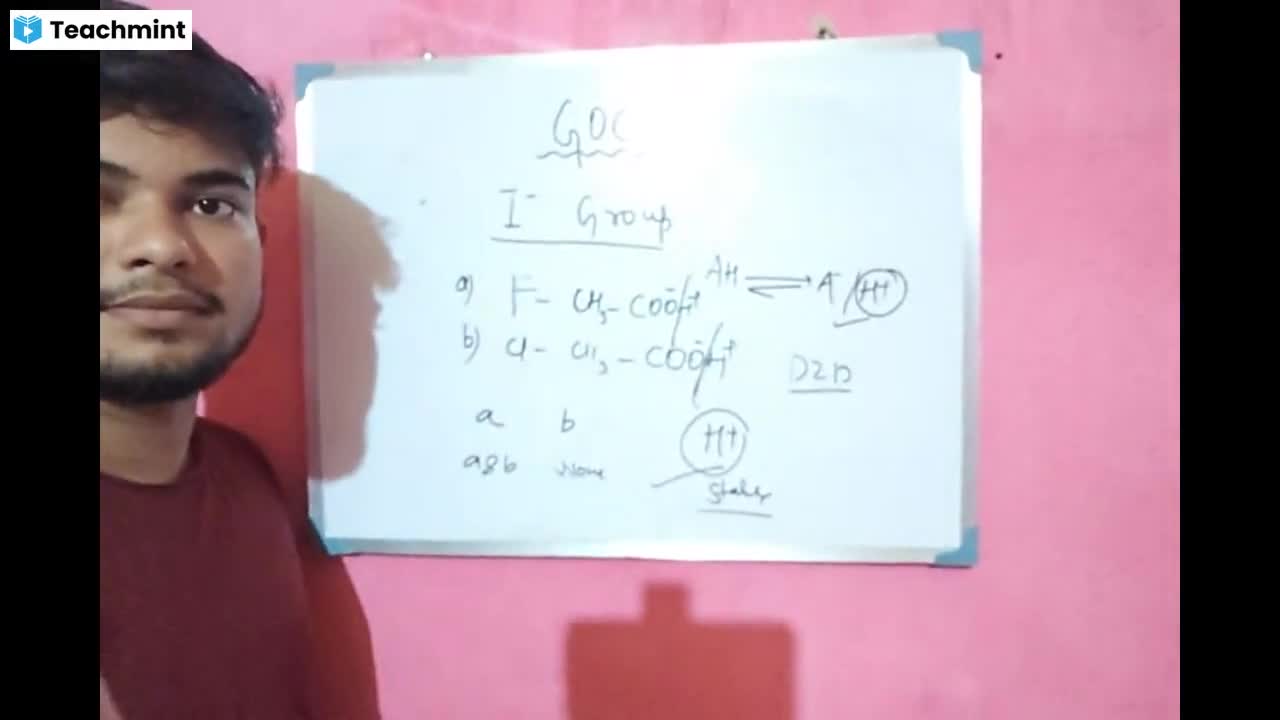 Teachmint
GOC
I⁻ Group
a) F - CH₂ - COO⁻H⁺
AH ⇌ A⁻ / H⁺
b) Cl - CH₂ - COO⁻H⁺
a b
H+
a&b None